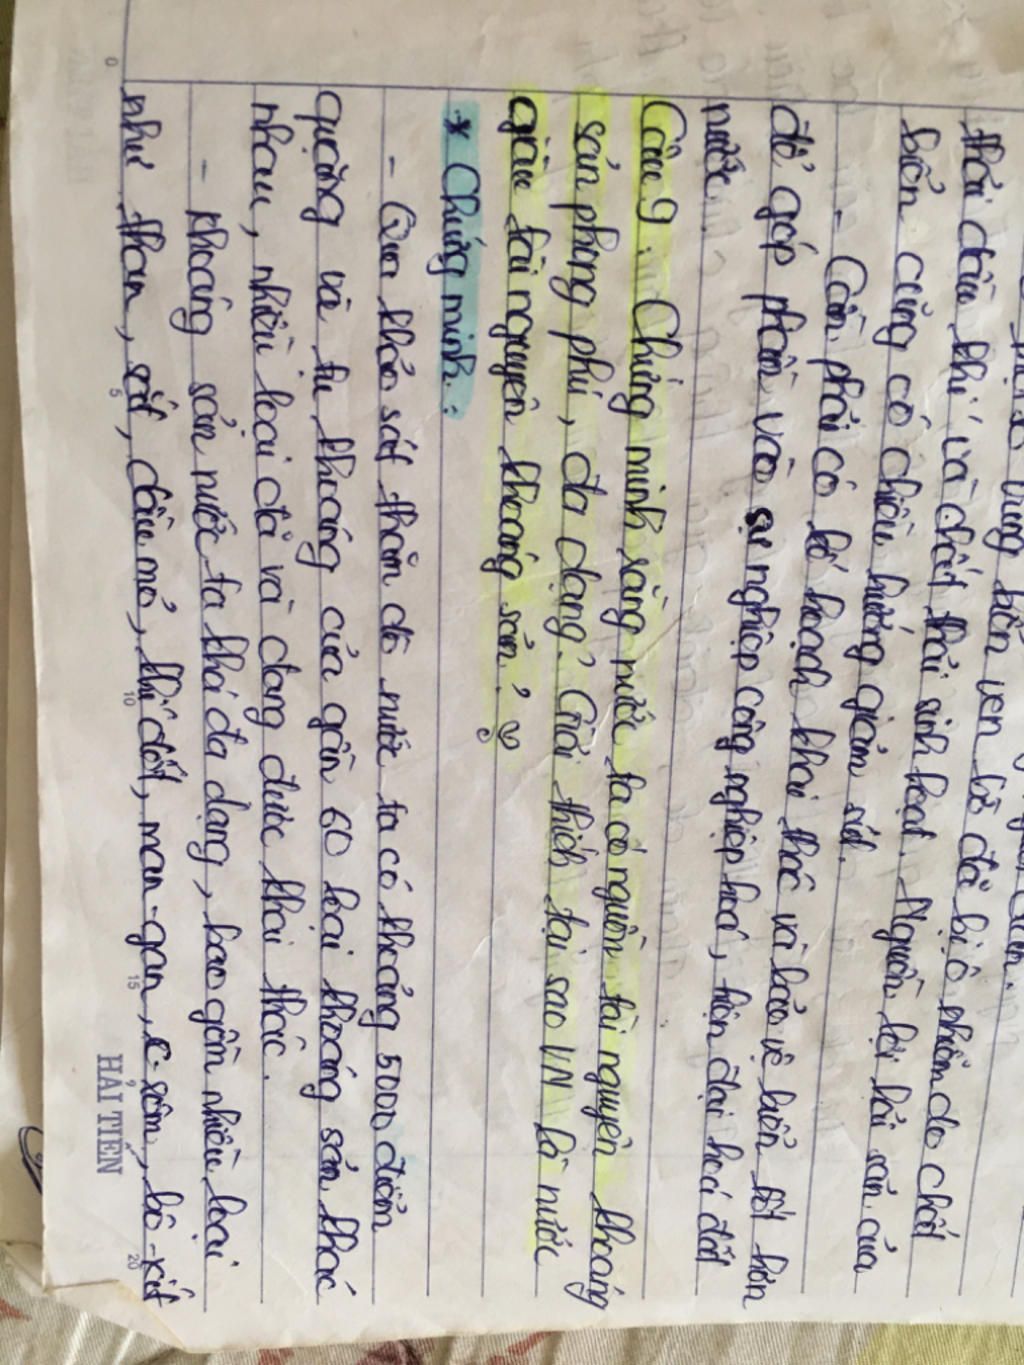 vùng biển ven bờ đã bị ô nhiễm do chất
thải dầu khí và chất thải sinh hoạt. Nguồn lợi hải sản của
biển cũng có chiều hướng giảm sút.
- Cần phải có kế hoạch khai thác và bảo vệ biển tốt hơn
để góp phần vào sự nghiệp công nghiệp hoá, hiện đại hoá đất
nước.
Câu 9: Chứng minh rằng nước ta có nguồn tài nguyên khoáng
sản phong phú, đa dạng? Giải thích tại sao VN là nước
giàu tài nguyên khoáng sản?
* Chứng minh:
- Qua khảo sát thăm dò nước ta có khoảng 5000 điểm
quặng và tụ khoáng của gần 60 loại khoáng sản khác
nhau, nhiều loại đã và đang được khai thác.
- Khoáng sản nước ta khá đa dạng, bao gồm nhiều loại
như than, sắt, dầu mỏ, khí đốt, man-gan, c-rôm, bô-xit
0 5 10 15 20
HẢI TIẾN